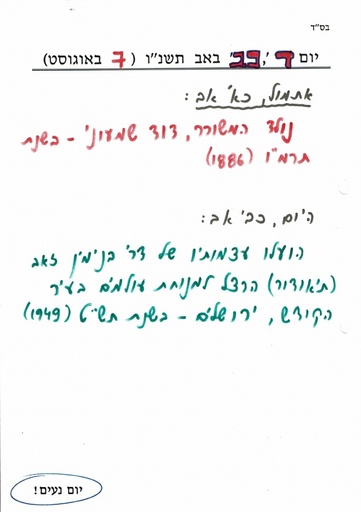 בס"ד
יום ד', כב' באב תשנ"ו (7 באוגוסט)
אתמול, כא' אב:
נולד המשורר, דוד שמעוני - בשנת
תרמ"ו (1886)
היום, כב' אב:
הועלו עצמותיו של דר' בנימין זאב
(תיאודור) הרצל למנוחת עולמים בעיר
הקודש, ירושלים - בשנת תש"ט (1949)
יום נעים!